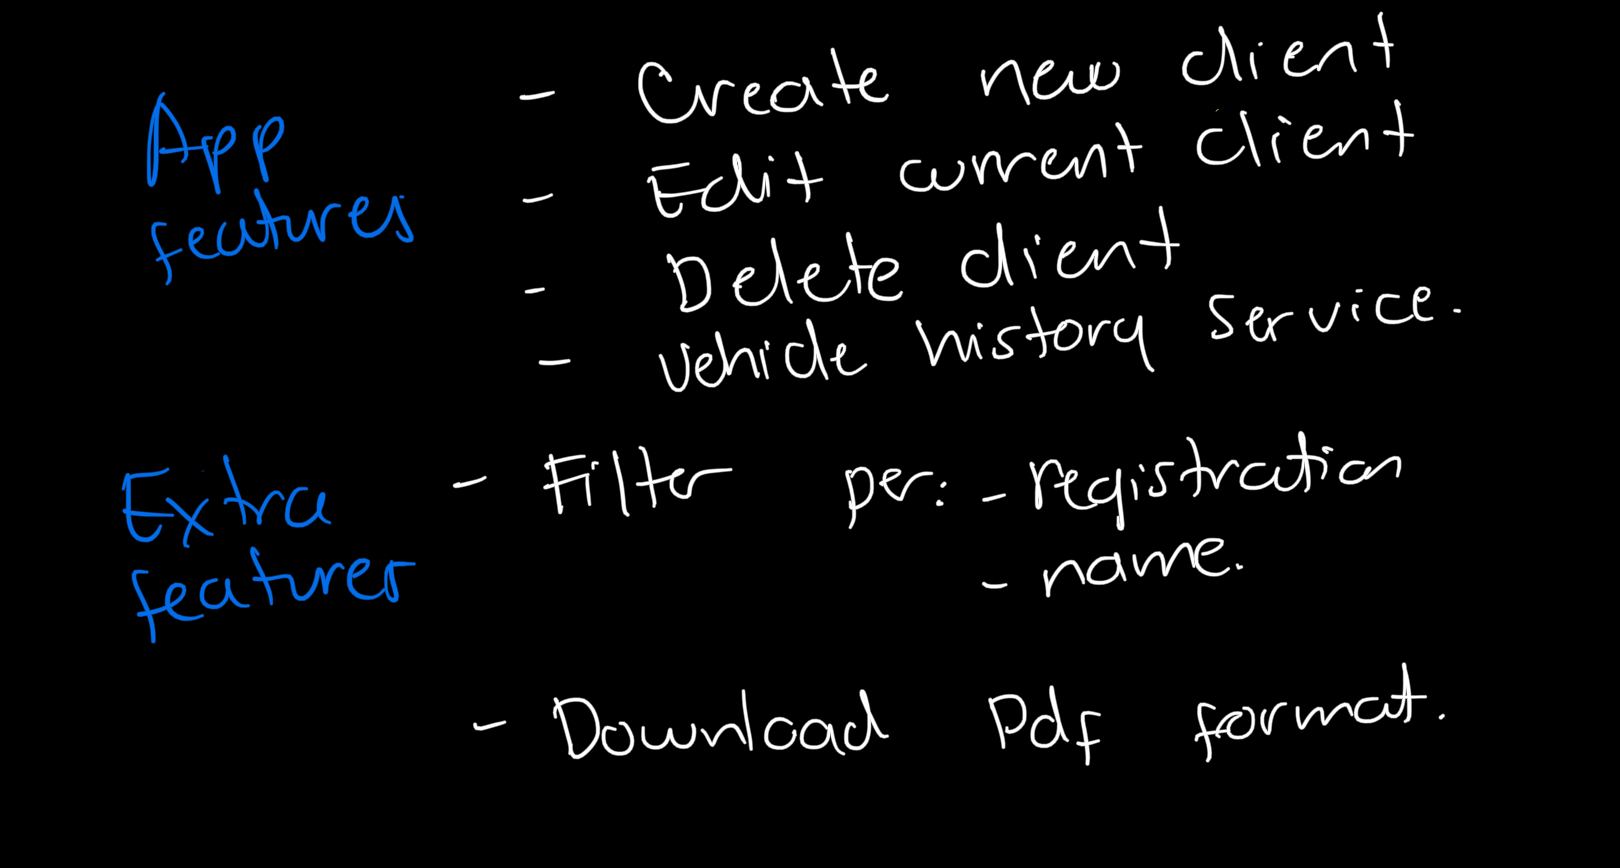 App
features
- Create new client
- Edit current client
- Delete client
- vehicle history service.
Extra
features
- Filter per: - registration
- name.
- Download Pdf format.